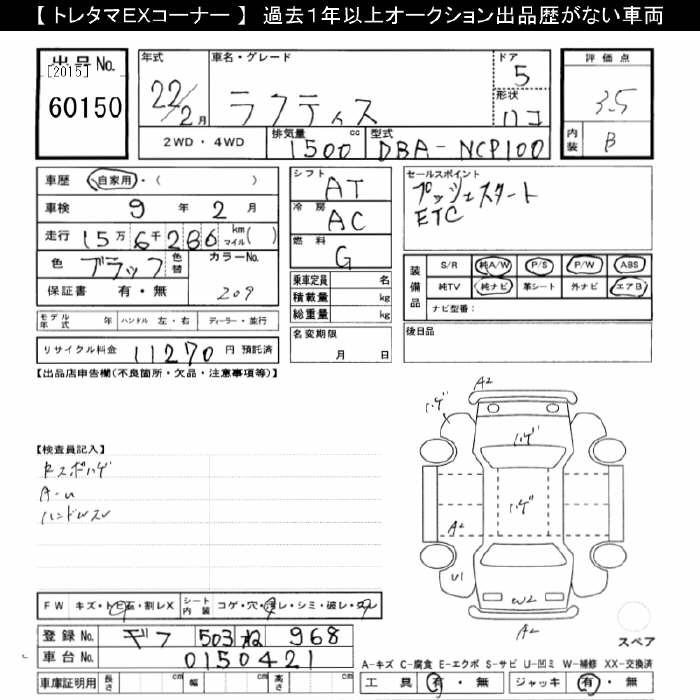 【 トレタマEXコーナー 】 過去1年以上オークション出品歴がない車両
出品No.
[2015]
60150
年式
22/2月
車名・グレード
ラクティス
ドア
5
形状
ハコ
評価点
3.5
内装
B
2WD・4WD
排気量
1500 cc
型式
DBA-NCP100
車歴 自家用・( )
車検 9年 2月
走行 15万 6千 286 km マイル( )
色 ブラック 色替
カラーNo.
209
保証書 有・無
シフト AT
冷房 AC
燃料 G
乗車定員 名
積載量 kg
総重量 kg
名変期限
月 日
セールスポイント
プッシュスタート
ETC
装備品
S/R 純A/W P/S P/W ABS
純TV 純ナビ 革シート 外ナビ エアB
ナビ型番:
後日品
モデル年式 年 ハンドル 左・右 ディーラー・並行
リサイクル料金 11270 円 預託済
【出品店申告欄(不良箇所・欠品・注意事項等)】
【検査員記入】
ハンドルスレ
A2
ハゲ
ハゲ
ハゲ
A2
U1
W2
A2
スペア
FW キズ・トビ石・割レX
シート内装 コゲ・穴・汚レ・シミ・破レ・スレ
登録No. 503 ね 968
車台No. 0150421
車庫証明用 長さ cm 幅 cm 高さ cm
A-キズ C-腐食 E-エクボ S-サビ U-凹ミ W-補修 XX-交換済
工具 有・無 ジャッキ 有・無